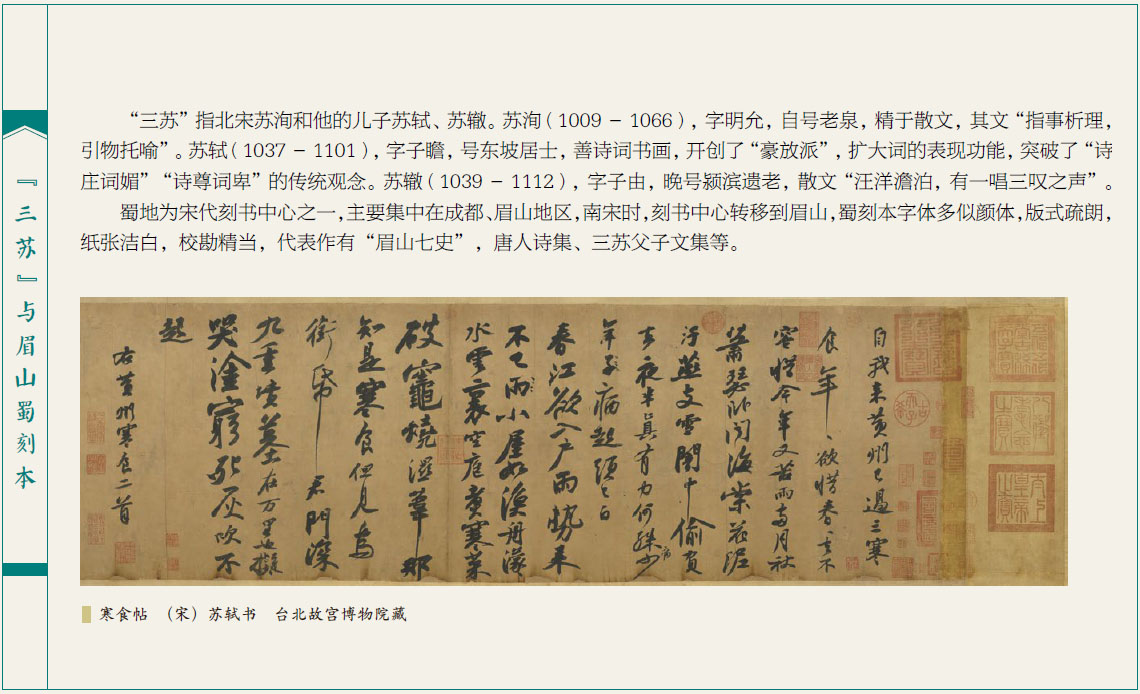 『三苏』与眉山蜀刻本
“三苏”指北宋苏洵和他的儿子苏轼、苏辙。苏洵（1009 – 1066），字明允，自号老泉，精于散文，其文“指事析理，
引物托喻”。苏轼（1037 – 1101），字子瞻，号东坡居士，善诗词书画，开创了“豪放派”，扩大词的表现功能，突破了“诗
庄词媚”“诗尊词卑”的传统观念。苏辙（1039 – 1112），字子由，晚号颍滨遗老，散文“汪洋澹泊，有一唱三叹之声”。
蜀地为宋代刻书中心之一，主要集中在成都、眉山地区，南宋时，刻书中心转移到眉山，蜀刻本字体多似颜体，版式疏朗，
纸张洁白，校勘精当，代表作有“眉山七史”，唐人诗集、三苏父子文集等。
自我来黄州已過三寒
食年〻欲惜春〻去不
容惜今年又苦雨兩月秋
蕭瑟卧聞海棠花泥
汙燕支雪闇中偷負
去夜半真有力何殊病少
年子病起頭已白
春江欲入户雨勢来
不已雨小屋如漁舟濛〻
水雲裏空庖煮寒菜
破竈燒濕葦那
知是寒食但見烏
銜帋君門深
九重墳墓在万里也擬
哭塗窮死灰吹不
起
右黄州寒食二首
寒食帖 （宋）苏轼书 台北故宫博物院藏